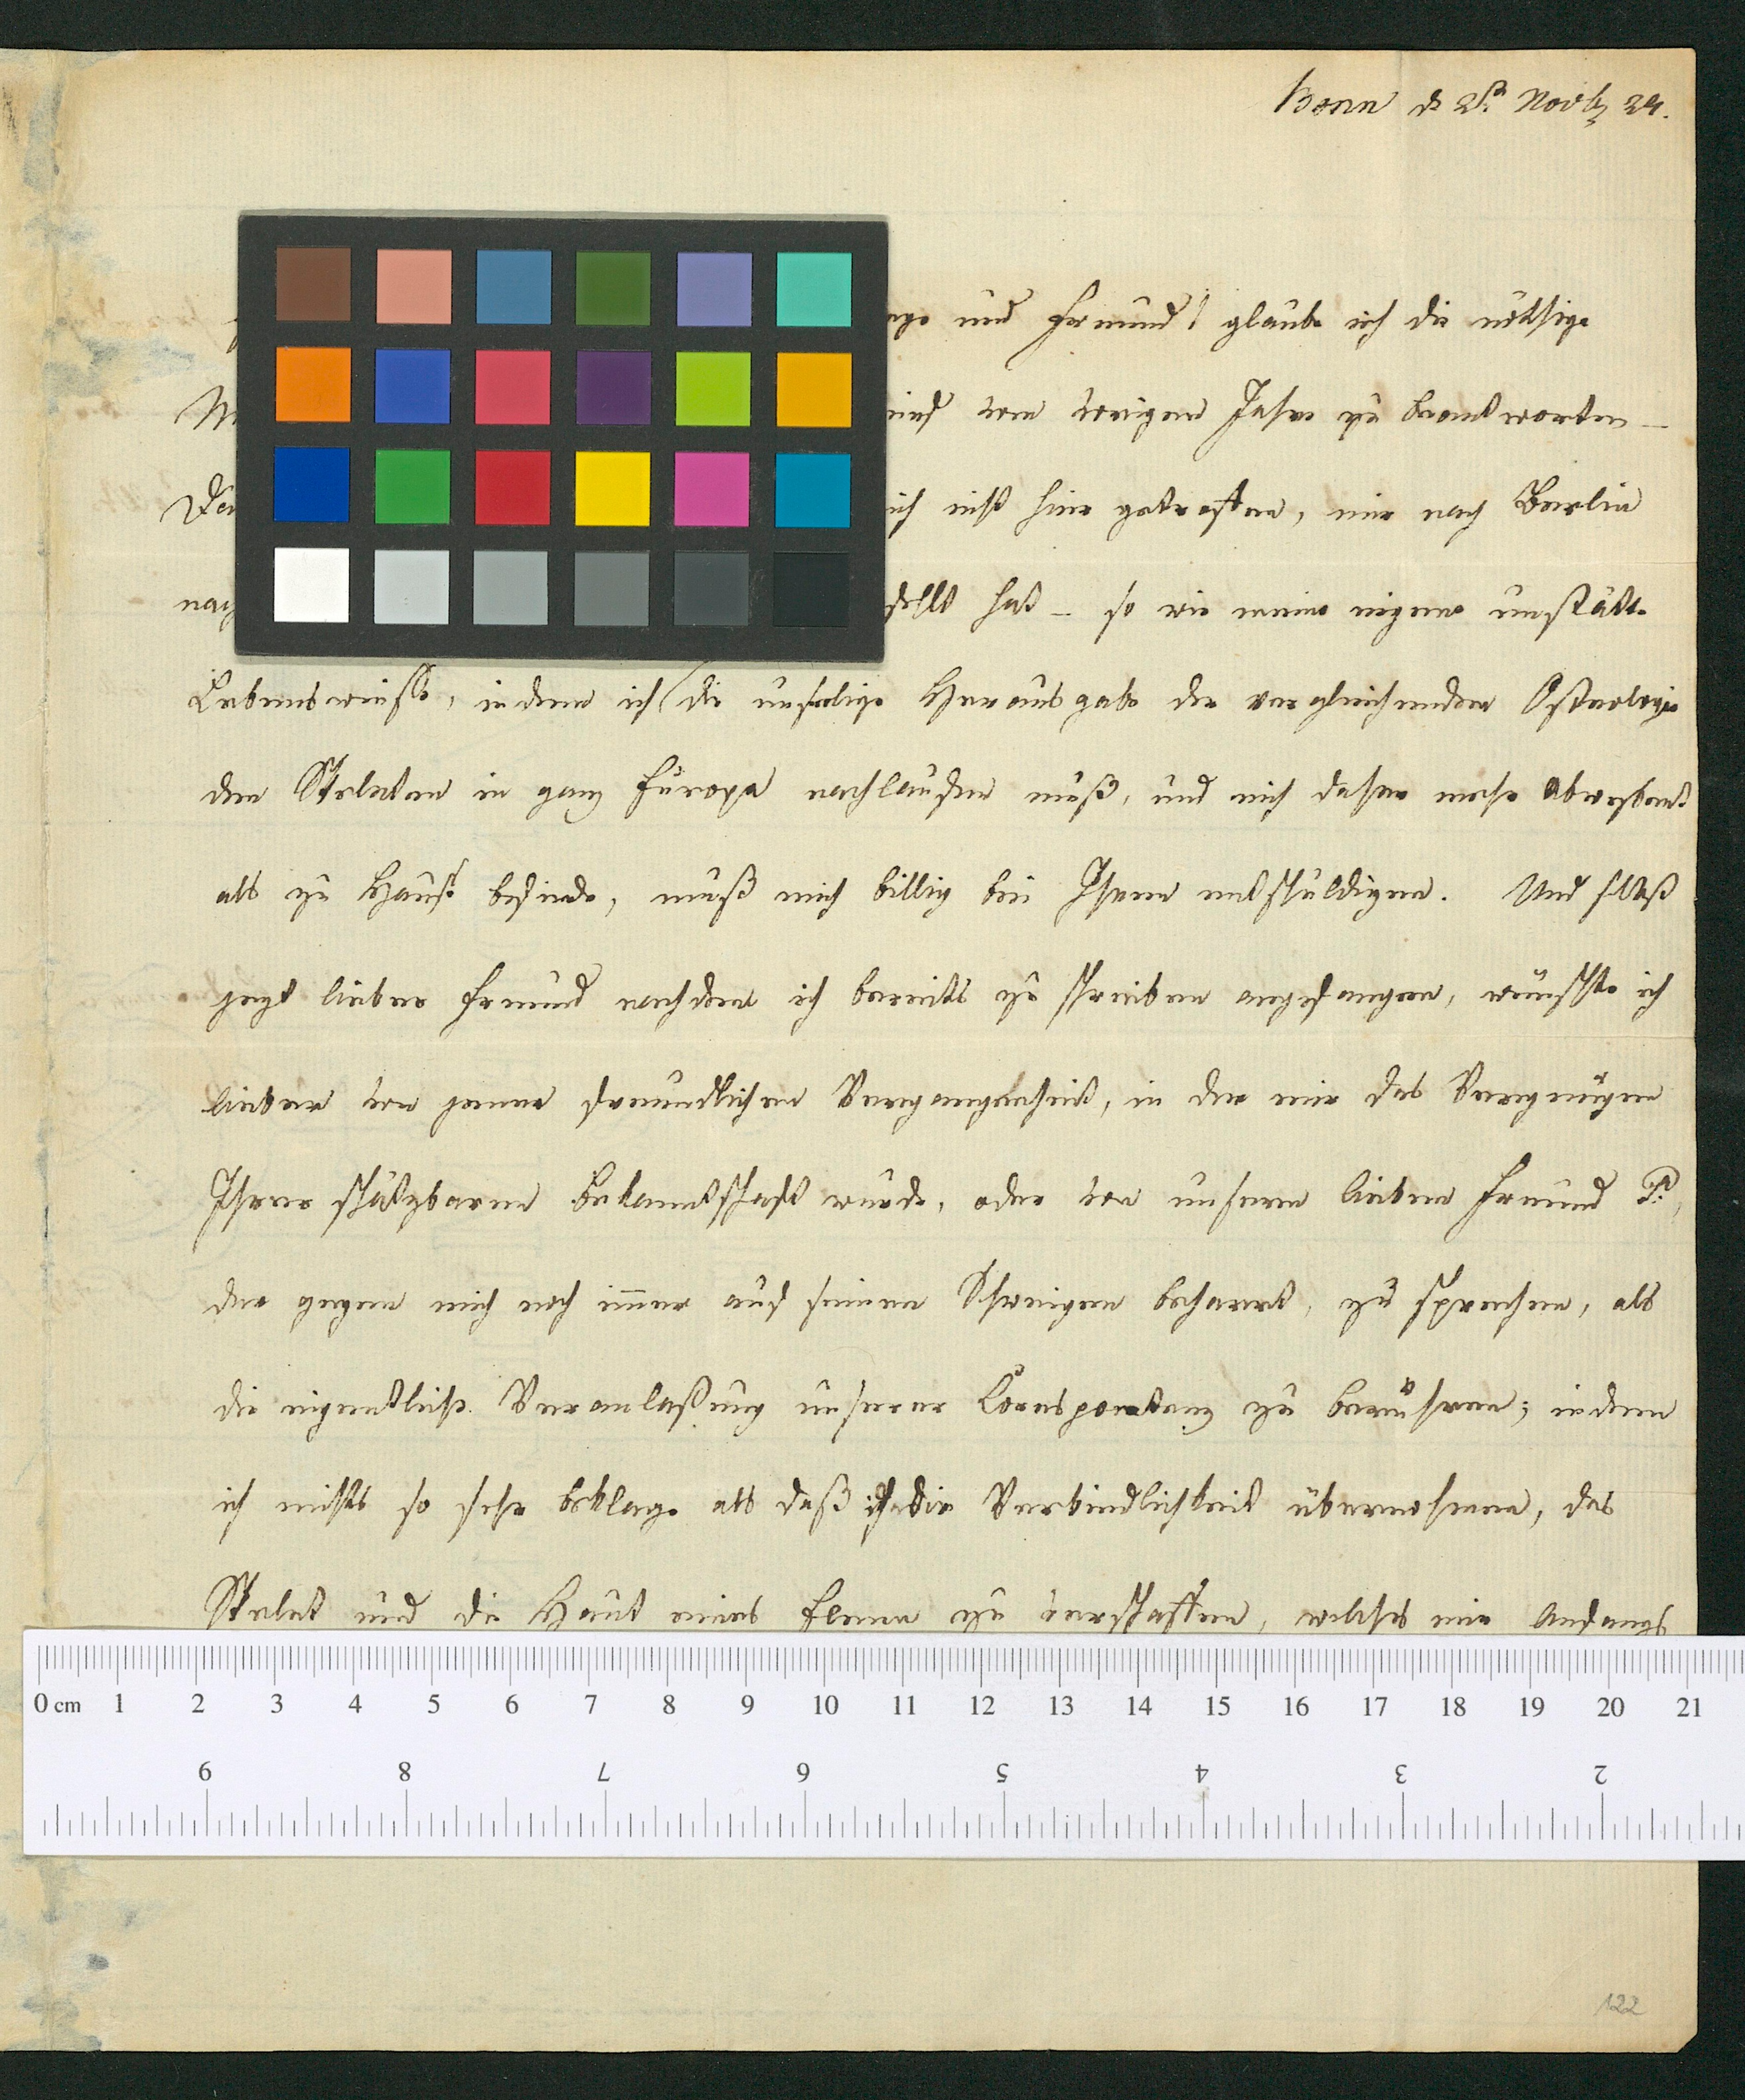 Bonn d 2t Novbr 24.
und Freund! glaube ich die nöthige
vom vorigen Jahre zu beantworten —
ich nicht hier getroffen, mir nach Berlin
hat — so wie meine eigene unstäte
Lebensweise, indem ich (die unselige Herausgabe der vergleichenden Osteologie
den Skeleten in ganz Europa nachlaufen muß, und mich daher mehr abwesend
als zu Hause befinde, muß mich billig bei Ihnen entschuldigen. Und selbst
jezt lieber Freund nachdem ich bereits zu schreiben angefangen, wünschte ich
lieber von jener freundlichen Vergangenheit, in der mir das Vergnügen
Ihrer schätzbaren Bekantschaft wurde, oder von unserm lieben Freund P.,
der gegen mich noch im̅er auf seinem Schweigen beharrt, zu sprechen, als
die eigentliche Veranlaßung unserer Corespontenz zu berühren; indem
ich nichts so sehr beklage als daß ich die Verbindlichkeit übernohmen, das
Skelet und die Haut eines Elenn zu verschaffen, welches mir Anfangs
0 cm 1 2 3 4 5 6 7 8 9 10 11 12 13 14 15 16 17 18 19 20 21
9 8 7 6 5 4 3 2
122